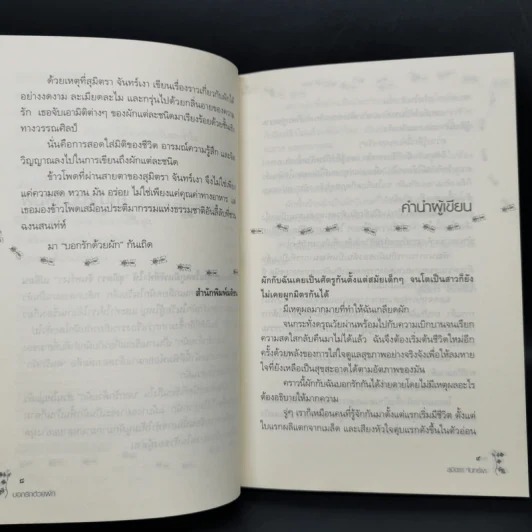 ด้วยเหตุที่สุมิตรา จันทร์เงา เขียนเรื่องราวเกี่ยวกับผักได้
อย่างงดงาม ละเมียดละไม และกรุ่นไปด้วยกลิ่นอายของความ
รัก เธอจับเอามิติต่างๆ ของผักแต่ละชนิดมาเรียงร้อยด้วยชั้นเชิง
ทางวรรณศิลป์
นั่นคือการสอดใส่มิติของชีวิต อารมณ์ความรู้สึก และจิต
วิญญาณลงไปในการเขียนถึงผักแต่ละชนิด
ข้าวโพดที่ผ่านสายตาของสุมิตรา จันทร์เงา จึงไม่ใช่เพียง
แค่ความสด หวาน มัน อร่อย ไม่ใช่เพียงแค่คุณค่าทางอาหาร แต่
เธอมองข้าวโพดเสมือนประติมากรรมแห่งธรรมชาติอันลี้ลับที่ชวน
ฉงนสนเท่ห์
มา "บอกรักด้วยผัก" กันเถิด
สำนักพิมพ์มติชน
๘
บอกรักด้วยผัก
คำนำผู้เขียน
ผักกับฉันเคยเป็นศัตรูกันตั้งแต่สมัยเด็กๆ จนโตเป็นสาวก็ยัง
ไม่เคยผูกมิตรกันได้
มีเหตุผลมากมายที่ทำให้ฉันเกลียดผัก
จนกระทั่งครุณวัยผ่านพร้อมไปกับความเบิกบานจนเรียก
ความสดใสกลับคืนมาไม่ได้แล้ว ฉันจึงต้องเริ่มต้นชีวิตใหม่อีก
ครั้งด้วยพลังของการใส่ใจดูแลสุขภาพอย่างจริงจังเพื่อให้ลมหาย
ใจที่ยังเหลือเป็นสุขสะอาดได้ตามอัตภาพของมัน
คราวนี้ผักกับฉันบอกรักกันได้ง่ายดายโดยไม่มีเหตุผลอะไร
ต้องอธิบายให้มากความ
จู่ๆ เราก็เหมือนคนที่รู้จักกันมาตั้งแต่แรกเริ่มมีชีวิต ตั้งแต่
ใบแรกผลิแตกจากเมล็ด และเสียงหัวใจตูบแรกดังขึ้นในตัวอ่อน
๙
สุมิตรา จันทร์เงา